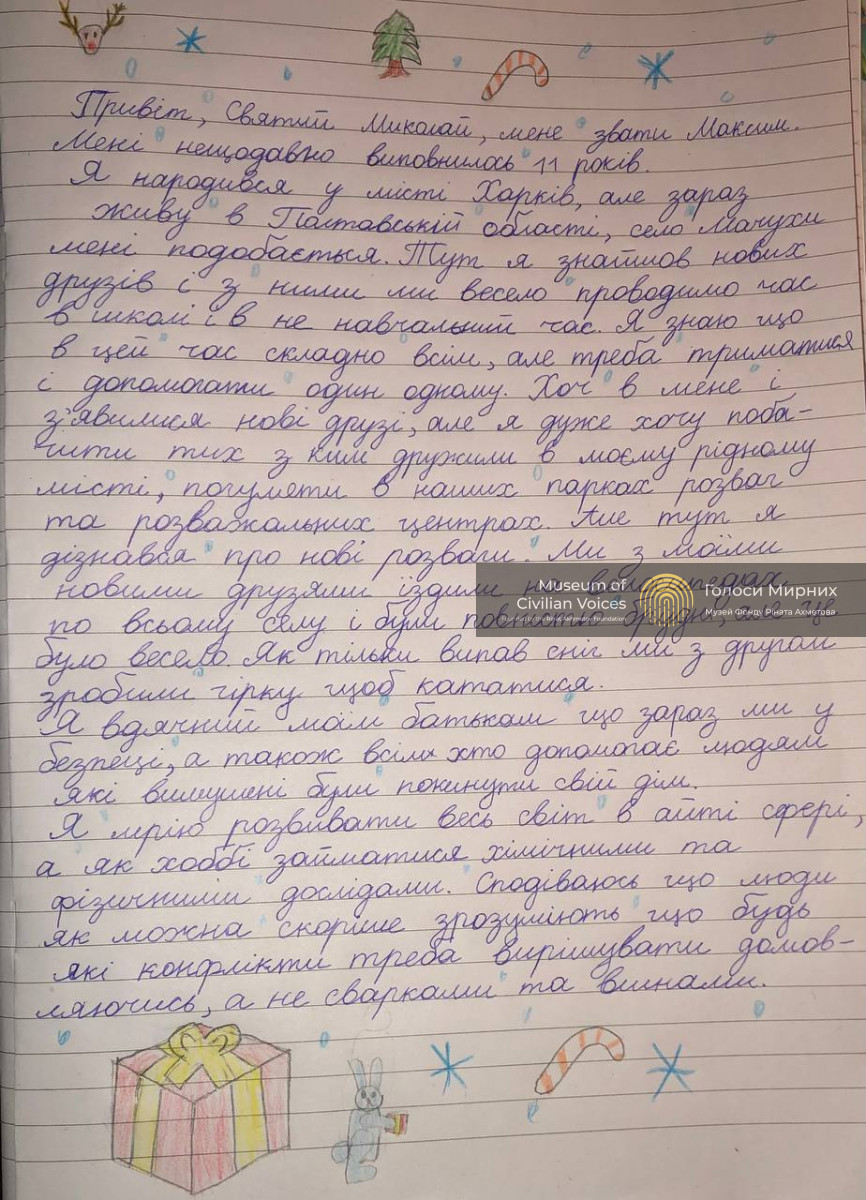 Привіт, Святий Миколай, мене звати Максим.
Мені нещодавно виповнилось 11 років.
Я народився у місті Харків, але зараз
живу в Полтавській області, село Мачухи
мені подобається. Тут я знайшов нових
друзів і з ними ми весело проводимо час
в школі і в не навчальний час. Я знаю що
в цей час складно всім, але треба триматися
і допомогати один одному. Хоч в мене і
з'явилися нові друзі, але я дуже хочу поба-
чити тих з ким дружили в моєму рідному
місті, погуляти в наших парках розваг
та розважальних центрах. Але тут я
дізнався про нові розваги. Ми з моїми
новими друзями їздили на велосипедах
Museum of
Civilian Voices
Голоси Мирних
Музей Фонду Ріната Ахметова
по всьому селу і були повністю брудні, але це
було весело. Як тільки випав сніг ми з другом
зробили гірку щоб кататися.
Я вдячний моїм батькам що зараз ми у
безпеці, а також всім хто допомогає людям
які вимушені були покинути свій дім.
Я мрію розвивати весь світ в айті сфері,
а як хоббі займатися хімічними та
фізичними дослідами. Сподіваюсь що люди
як можна скоріше зрозуміють що будь
які конфлікти треба вирішувати домов-
ляючись, а не сварками та війнами.